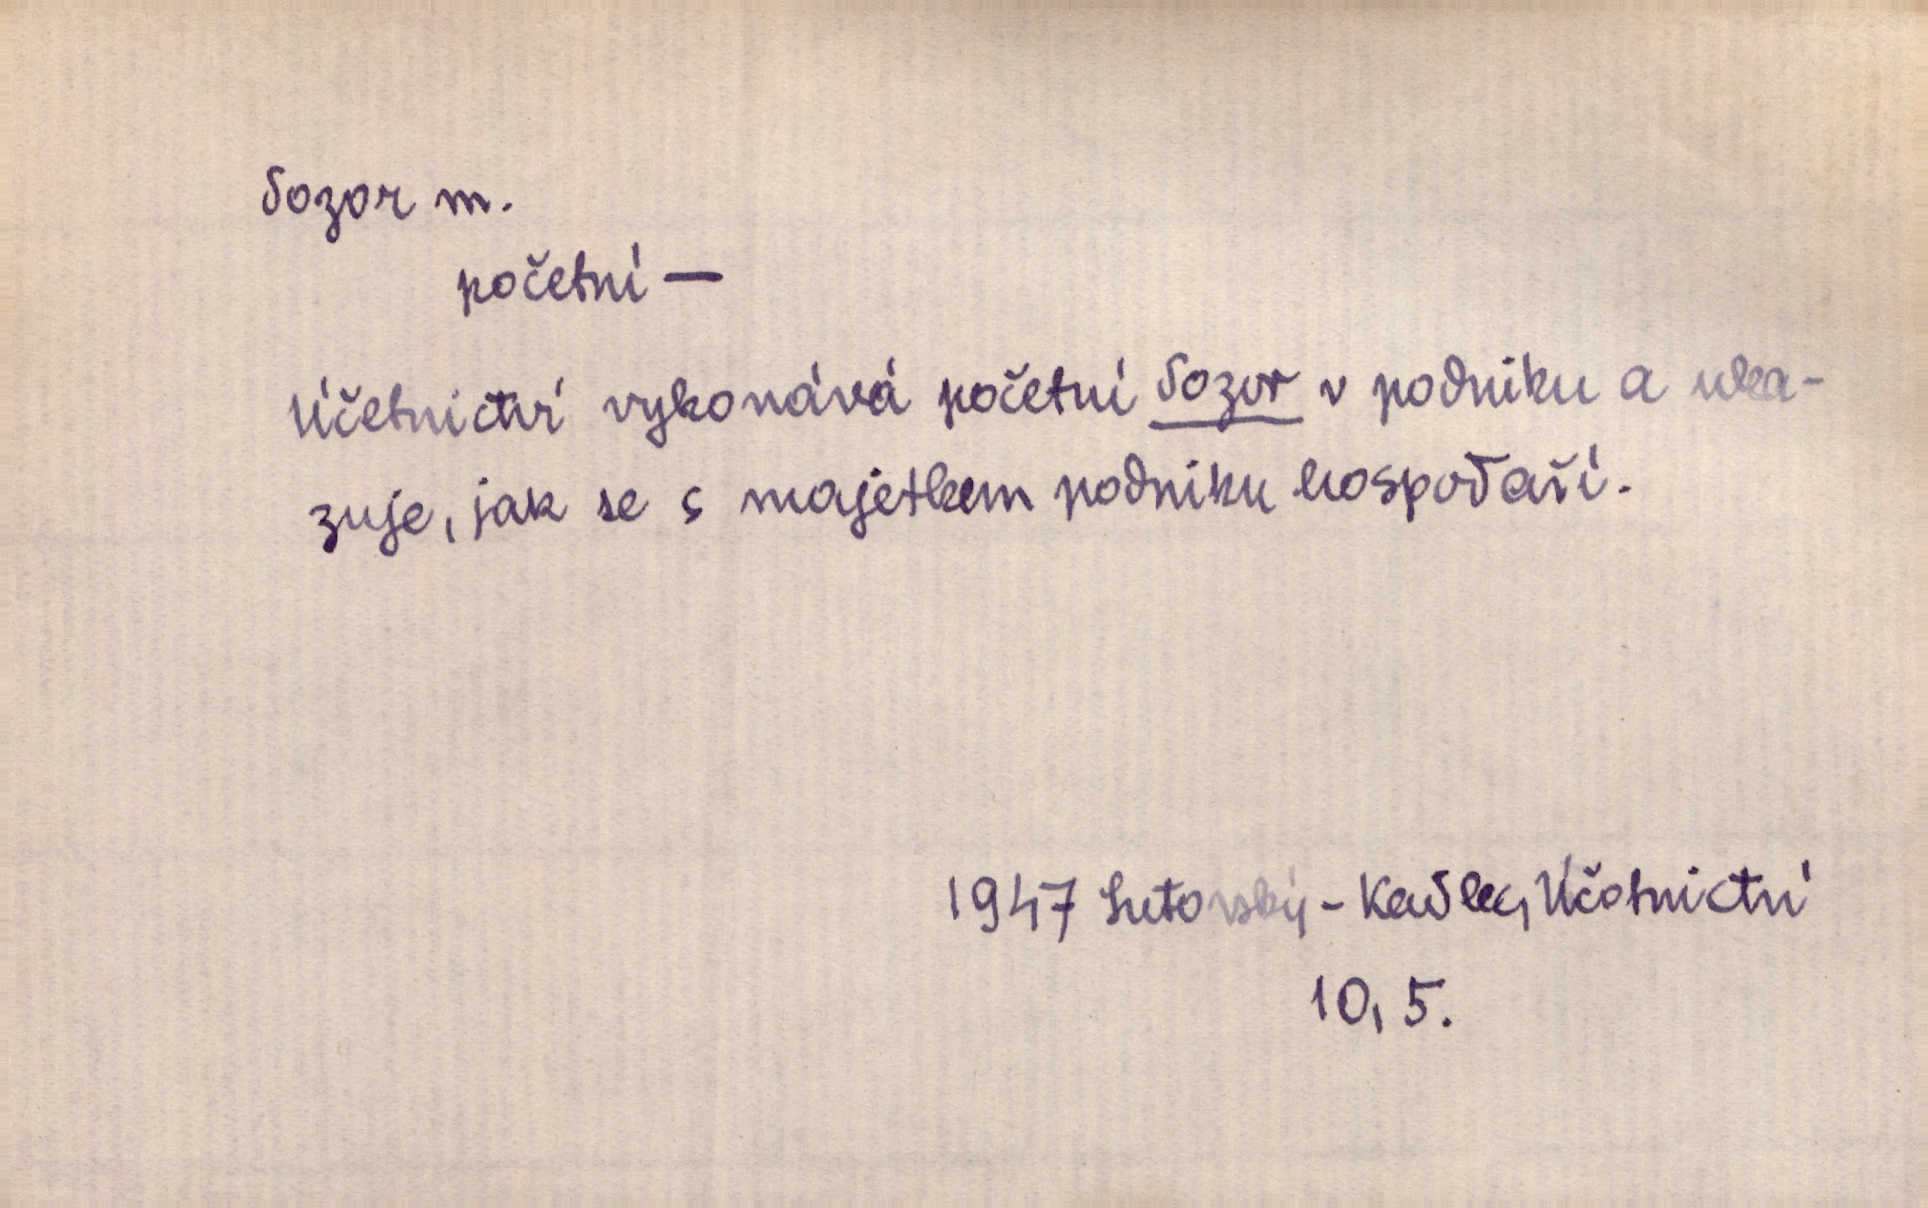 dozor m.
početní —
Účetnictví vykonává početní dozor v podniku a uka-
zuje, jak se s majetkem podniku hospodaří.
1947 Lutovský - Kadlec, Účetnictví
10, 5.